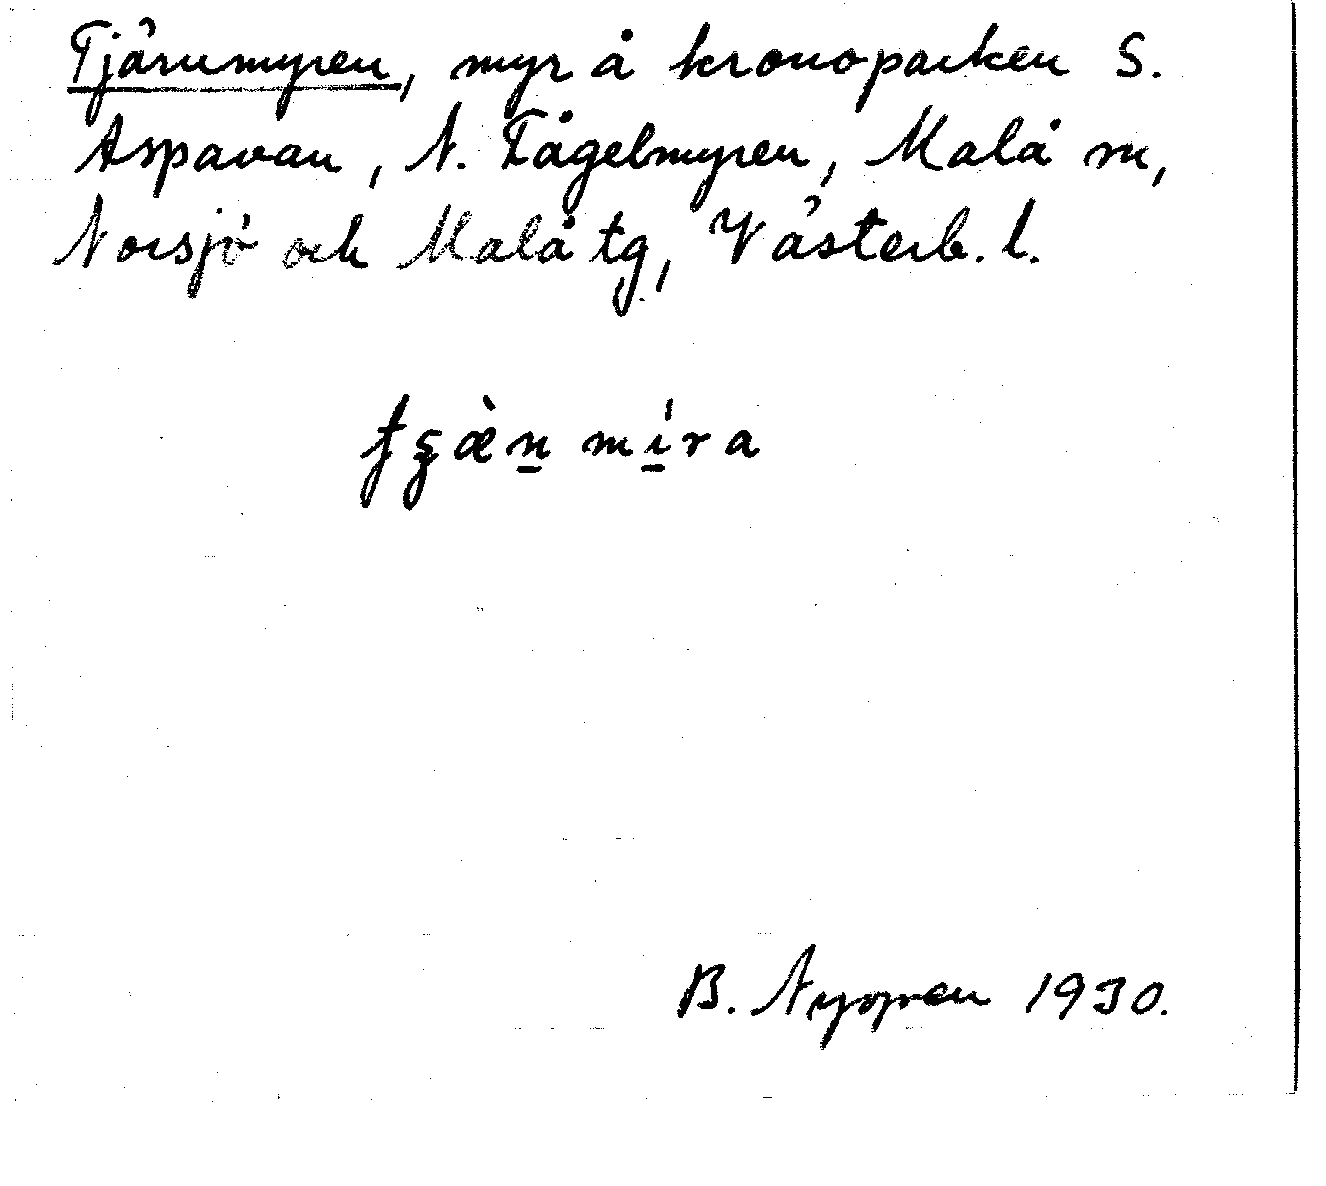 Tjärnmyren, myr å kronoparken S.
Aspavan, N. Fågelmyren, Malå sn,
Norsjö och Malå tg, Västerb. l.
tʂæ̀n̲ mí̲ra
B. Nygren 1930.